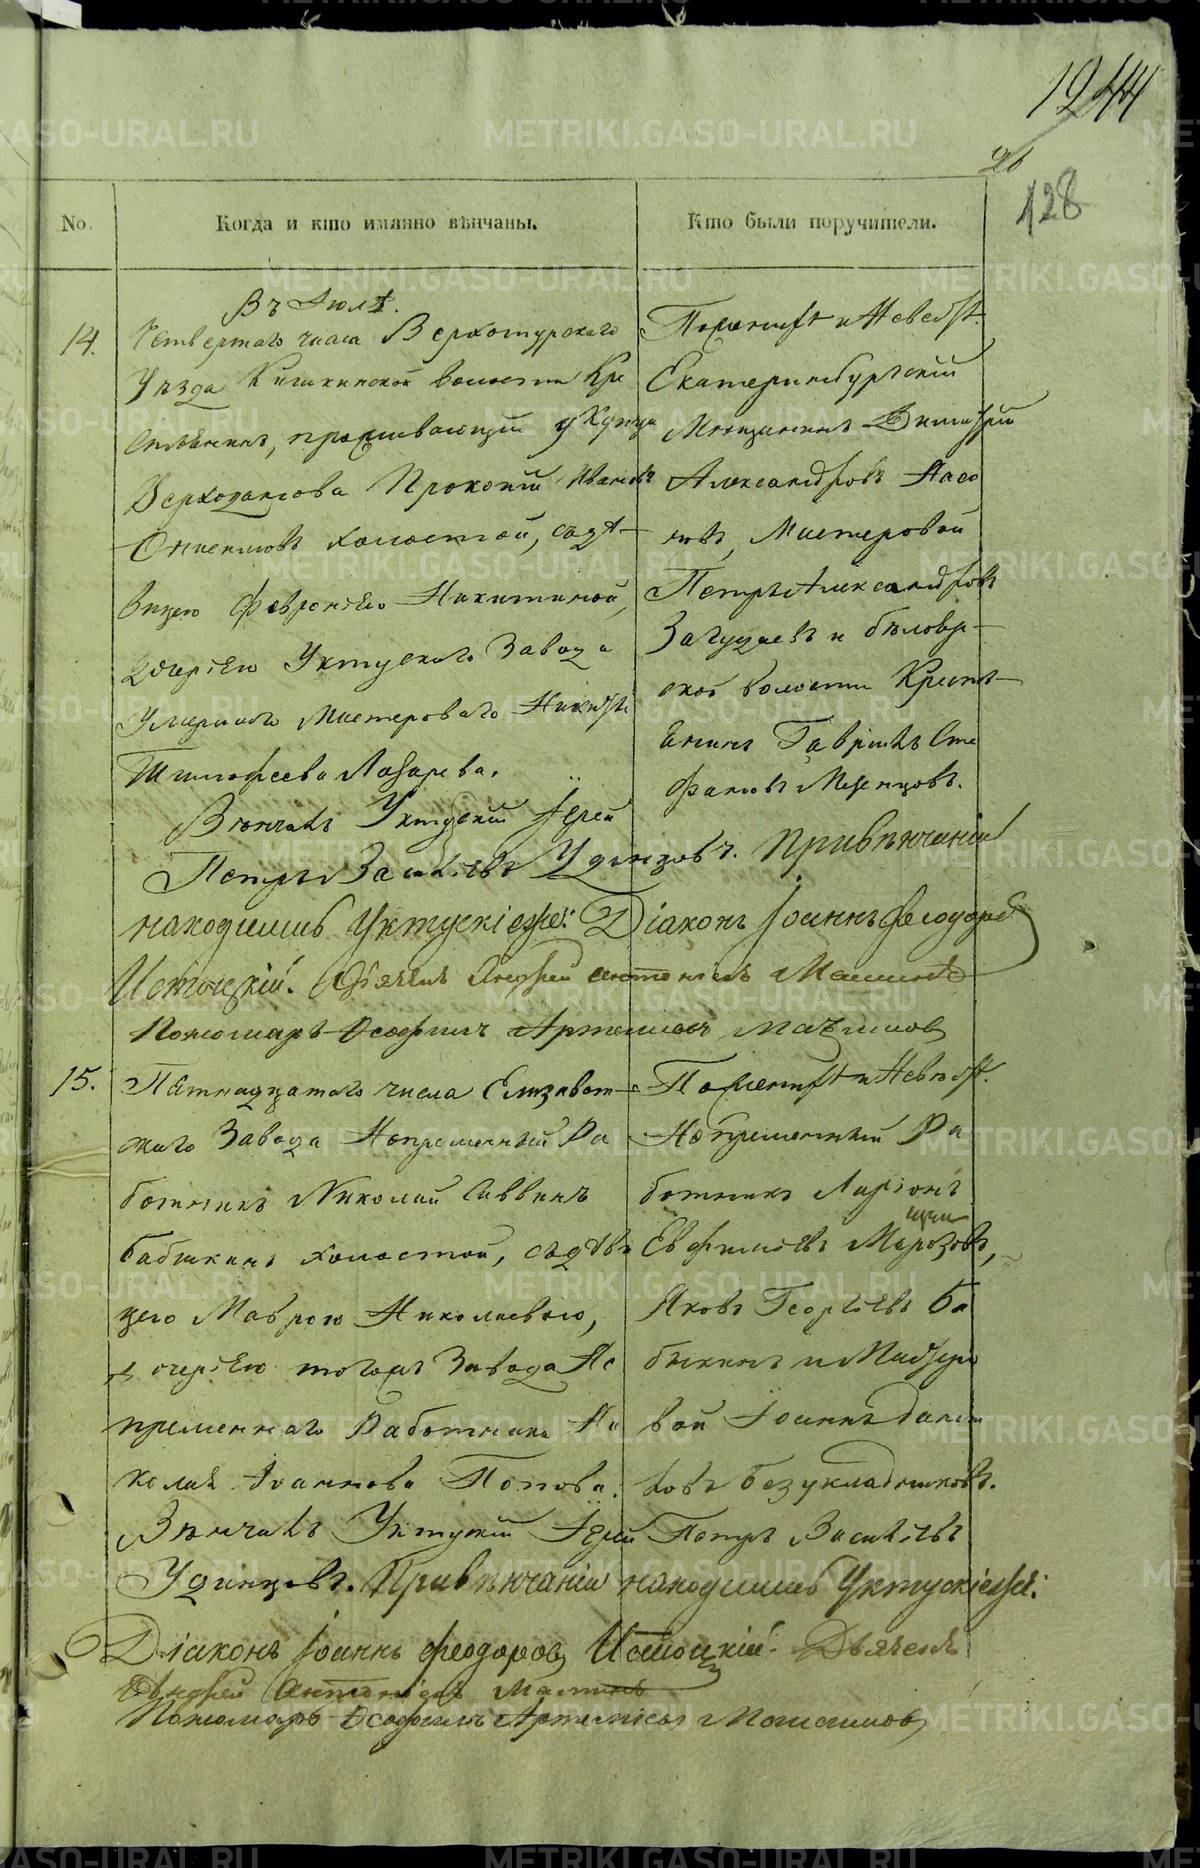 1244
26
128
No. Когда и кто имянно вѣнчаны. Кто были поручители.
Въ Іюлѣ.
14. Четвертаго числа Верхотурскаго
Уѣзда волости Кре
стьянинъ, проживающій у Купца
Верходанова Прокопій Ивановъ
холостой, съ дѣ-
вицею Февроніею Никитиной,
дочерію Уктускаго Завода
умершаго Мастероваго Никиты
Тимофеева Лазарева.
По женихѣ и Невѣстѣ.
Екатеринбургскій
Мѣщанинъ Димитрій
Александровъ Насо
новъ, Мастеровой
Петръ Александровъ
и бѣлояр-
ской волости Крестья-
нинъ Гавріилъ Сте
фановъ Мезенцовъ.
Вѣнчалъ Уктускій Іерей
Петръ Васильевъ Удинцовъ. При вѣнчаніи
находились Уктускіе же: Діаконъ Іоаннъ Феодоровъ
Истоцкій. Дьячекъ Андрей
Пономарь Феофилъ Артемьевъ
15. Пятнадцатаго числа Елизавет-
скаго Завода Непременный Ра
ботникъ Николай Саввинъ
Бабкинъ холостой, съ дѣви
цею Маврою Николаевою,
дочерію тогожъ Завода Не
пременнаго Работника Ни
колая Іоаннова Попова.
По женихѣ и Невѣстѣ.
Непременный Ра
ботникъ Ларіонъ
Евфиміевъ Морозовъ,
Яковъ Георгіевъ Ба
бкинъ и Мастеро
вой Іоаннъ Дани
ловъ Безукладниковъ.
Вѣнчалъ Уктускій Іерей Петръ Васильевъ
Удинцовъ. При вѣнчаніи находились Уктускіе же:
Діаконъ Іоаннъ Феодоровъ Истоцкій. Дьячекъ
Андрей
Пономарь Феофилъ Артемьевъ
METRIKI.GASO-URAL.RU